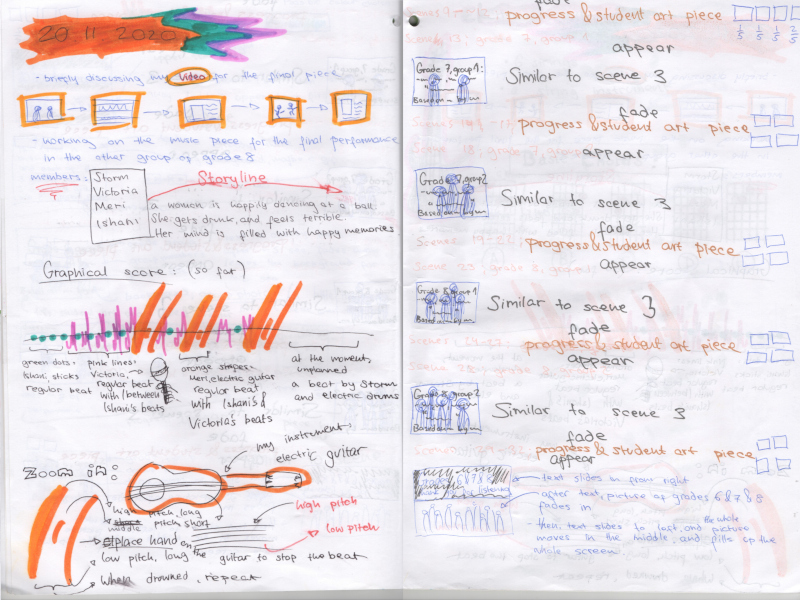 20 11 2020
- briefly discussing my video for the final piece
- working on the music piece for the final performance
in the other group of grade 8
members:
Storm
Victoria
Meri
Ishani
Storyline
a woman is happily dancing at a ball.
She gets drunk, and feels terrible.
Her mind is filled with happy memories
Graphical score: (so far)
green dots:
Ishani sticks
regular beat
pink lines:
Victoria,
regular beat
with/between
Ishani's beats
orange shapes:
Meri, electric guitar
regular beat
with Ishani's &
Victoria's beats
at the moment,
unplanned
a beat by Storm
and electric drums
my instrument:
electric guitar
Zoom in:
high pitch, long
middle pitch short
place hand on
the guitar to stop the beat
low pitch, long
When drowned, repeat
high pitch
low pitch
fade
progress & student art piece
1/5 1/5 1/5 2/5
appear
Grade 7, group 1:
Based on by
Similar to scene 3
fade
progress & student art piece
appear
Grade 7, group 2
Based on by
Similar to scene 3
fade
progress & student art piece
appear
Grade 8, group 1
Based on by
Similar to scene 3
fade
progress & student art piece
appear
Grade 8, group 2
Based on by
Similar to scene 3
fade
progress & student art piece
appear
text slides in from right
after text, picture of grades 6 & 7 & 8
fades in
- then, text slides to left, and the whole picture
moves in the middle, and fills up the
whole screen.